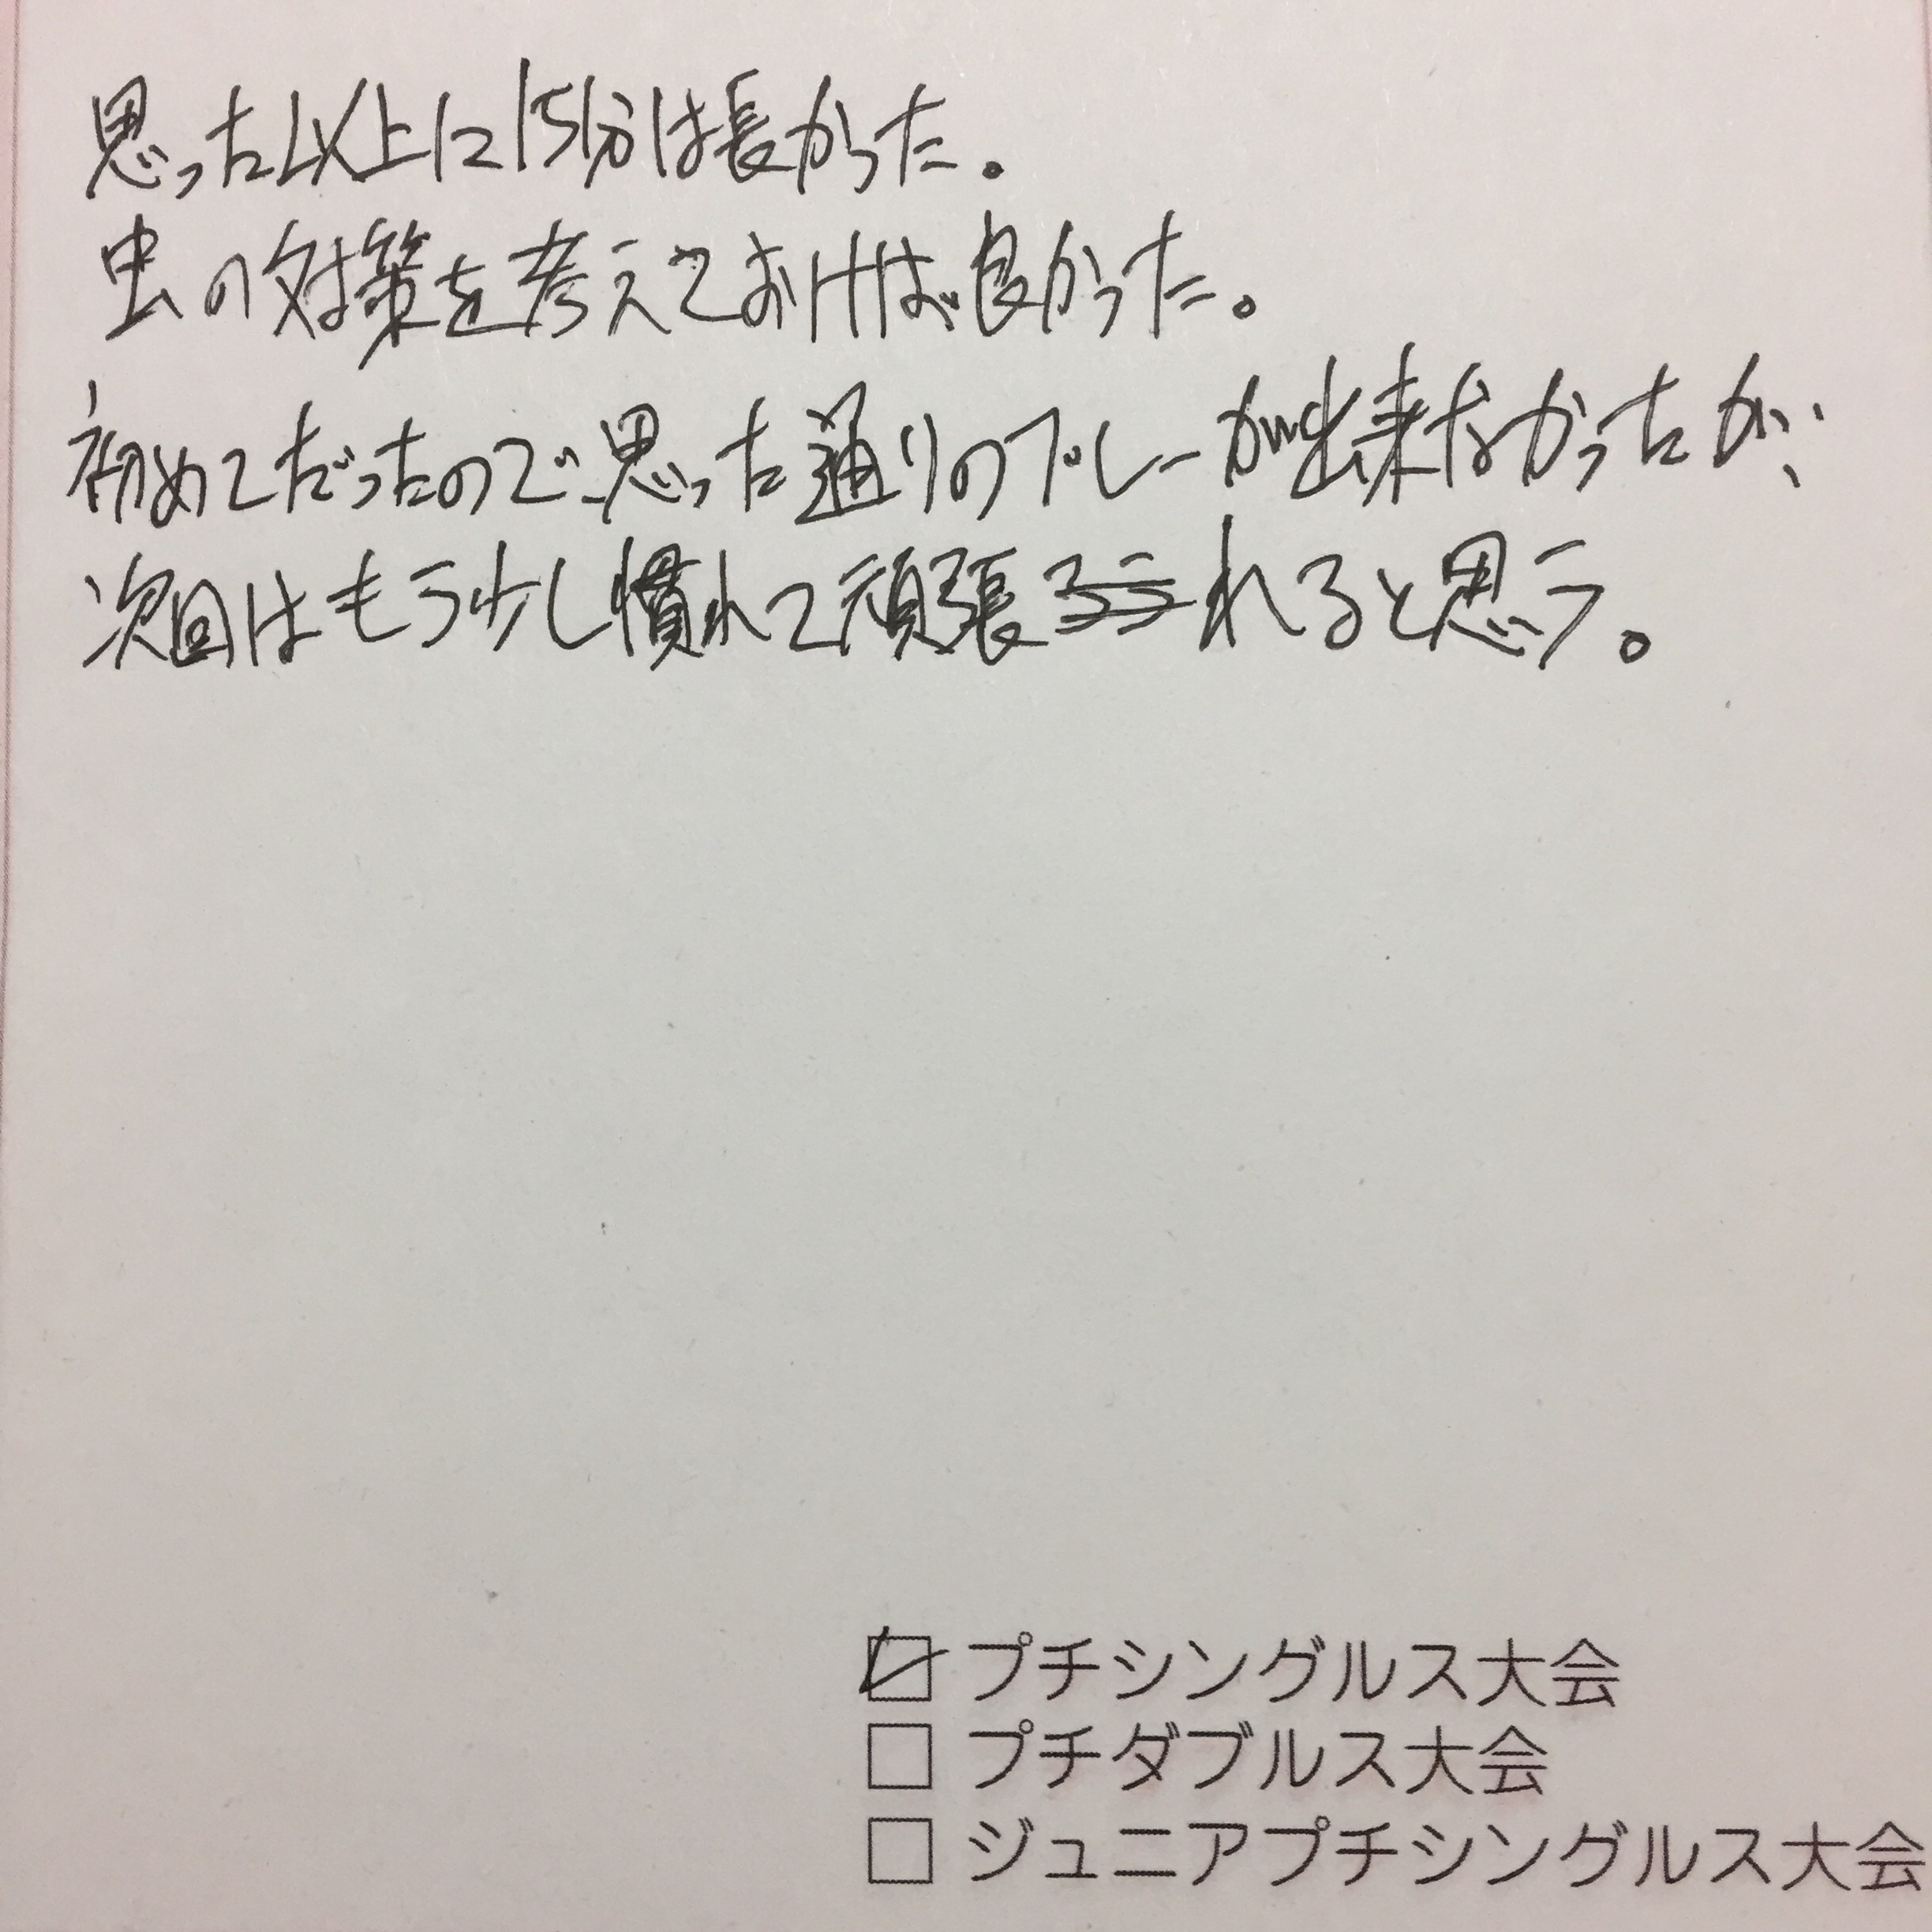 思った以上に15分は長かった。
虫の対策を考えておけば良かった。
初めてだったので思った通りのプレーが出来なかったが、
次回はもう少し慣れて頑張れると思う。
☑ プチシングルス大会
☐ プチダブルス大会
☐ ジュニアプチシングルス大会